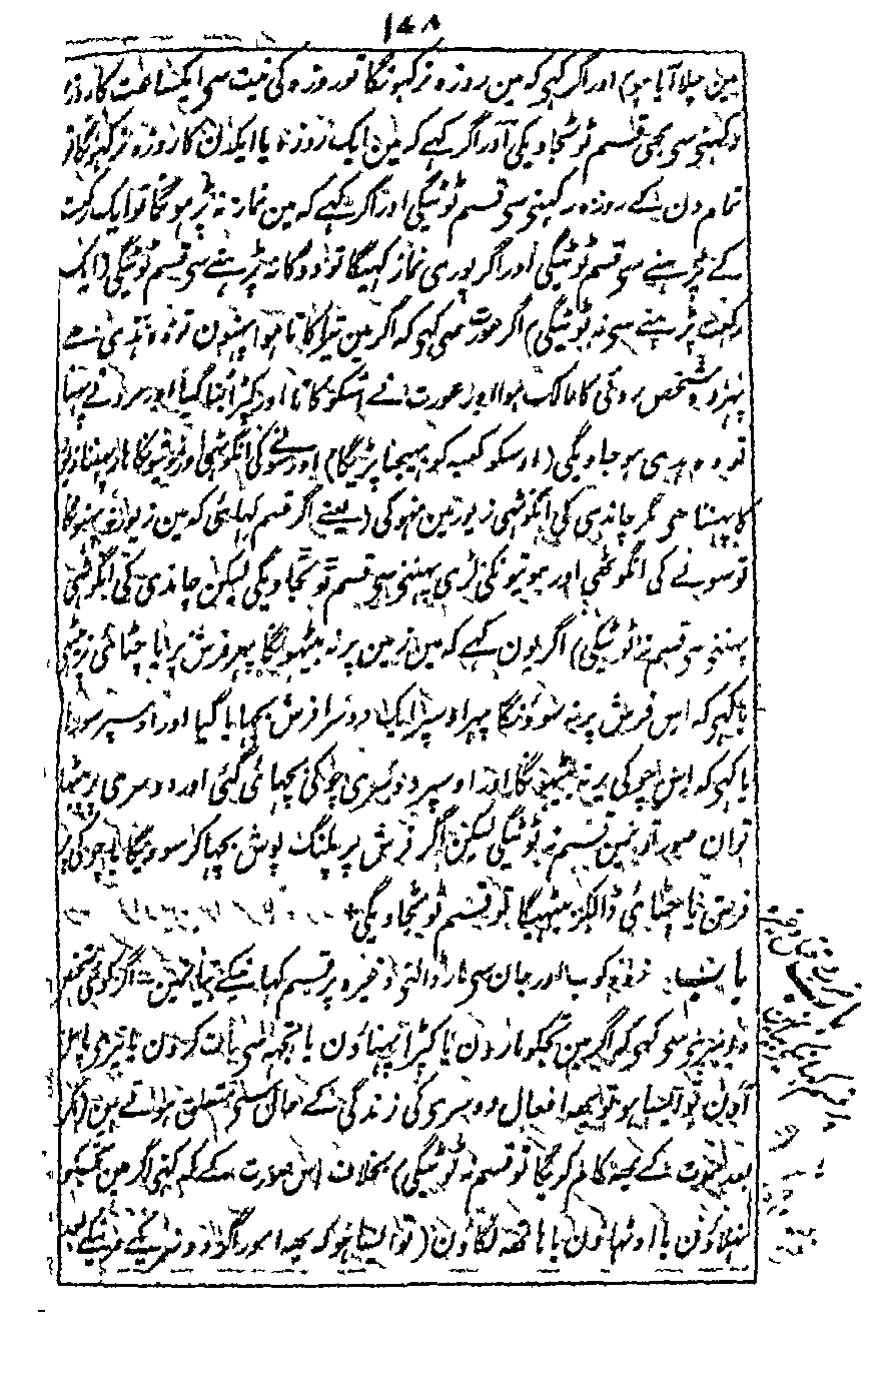 ۱۶۸
مین چلا آیا ہو) اور اگر کہی کہ مین روزہ نرکہونگا تو روزہ کی نیت سی ایکساعت کا روزہ
رکہنی سی بہی قسم ٹوٹجاویگی اور اگر کہے کہ مین ایک روزہ یا ایکدن کا روزہ نرکہونگا تو
تمام دن کے روزہ رکہنی سی قسم ٹوٹیگی اور اگر کہے کہ مین نماز نہ پڑہونگا تو ایک رکعت
کے پڑہنے سی قسم ٹوٹیگی اور اگر پوری نماز کہیگا تو دوگانہ پڑہنے سی قسم ٹوٹیگی (ایک
رکعت پڑہنے سی نہ ٹوٹیگی) اگر عورت سی کہی کہ اگر مین تیرا کاتا ہوا پہنون تو وہ ہدی ہے
پہر وہ شخص روئی کا مالک ہوا اور عورت نے اسکو کاتا اور کپڑا بنا گیا اور مرد نے پہنا
تو وہ ہدی ہو جاویگی (اوسکو کعبہ کو بہیجنا پڑیگا) اور سونے کی انگوٹہی اور موتیونکا ہار پہننا زیور
کا پہننا ہی مگر چاندی کی انگوٹہی زیور نہین ہوکی (یعنے اگر قسم کہائی کہ مین زیور نہ پہنونگا
تو سونے کی انگوٹہی اور موتیونکی لڑی پہننی سی قسم ٹوٹجاویگی لیکن چاندی کی انگوٹہی
پہننی سی قسم نہ ٹوٹیگی) اگر یون کہے کہ مین زمین پر نہ بیٹہونگا پہر فرش پر یا چٹائی پر بیٹہی
یا کہی کہ اس فرش پر نہ سوؤنگا پہر اوسپر ایک دوسرا فرش بچہایا گیا اور اوسپر سویا
یا کہی کہ اس چوکی پر نہ بیٹہونگا اور اوسپر دوسری چوکی بچہائی گئی اور دوسری پر بیٹہا
تو ان صورتونمین قسم نہ ٹوٹیگی لیکن اگر فرش پر پلنگ پوش بچہا کر سوویگا یا چوکی پر
فرش یا چٹائی ڈالکر بیٹہیگا تو قسم ٹوٹجاویگی
باب زدوکوب اور جان سی مار ڈالنی وغیرہ پر قسم کہانیکے بیانمین اگر کوئی شخص
دوسری سی کہی کہ اگر مین تجکو مارون یا کپڑا پہناؤن یا تجہہ سی بات کرون یا تیری پاس
آؤن تو ایسا ہو تو یہہ افعال دوسری کی زندگی کے حال سی متعلق ہوتے ہین (اگر
بعد موت کے یہہ کام کریگا تو قسم نہ ٹوٹیگی) بخلاف اس صورت کے کہ کہی اگر مین تجہکو
نہلاؤن یا اوٹہاؤن یا ہاتھہ لگاؤن (تو ایسا ہو کہ یہہ امور اگر دوسریکے مرنیکے بعد